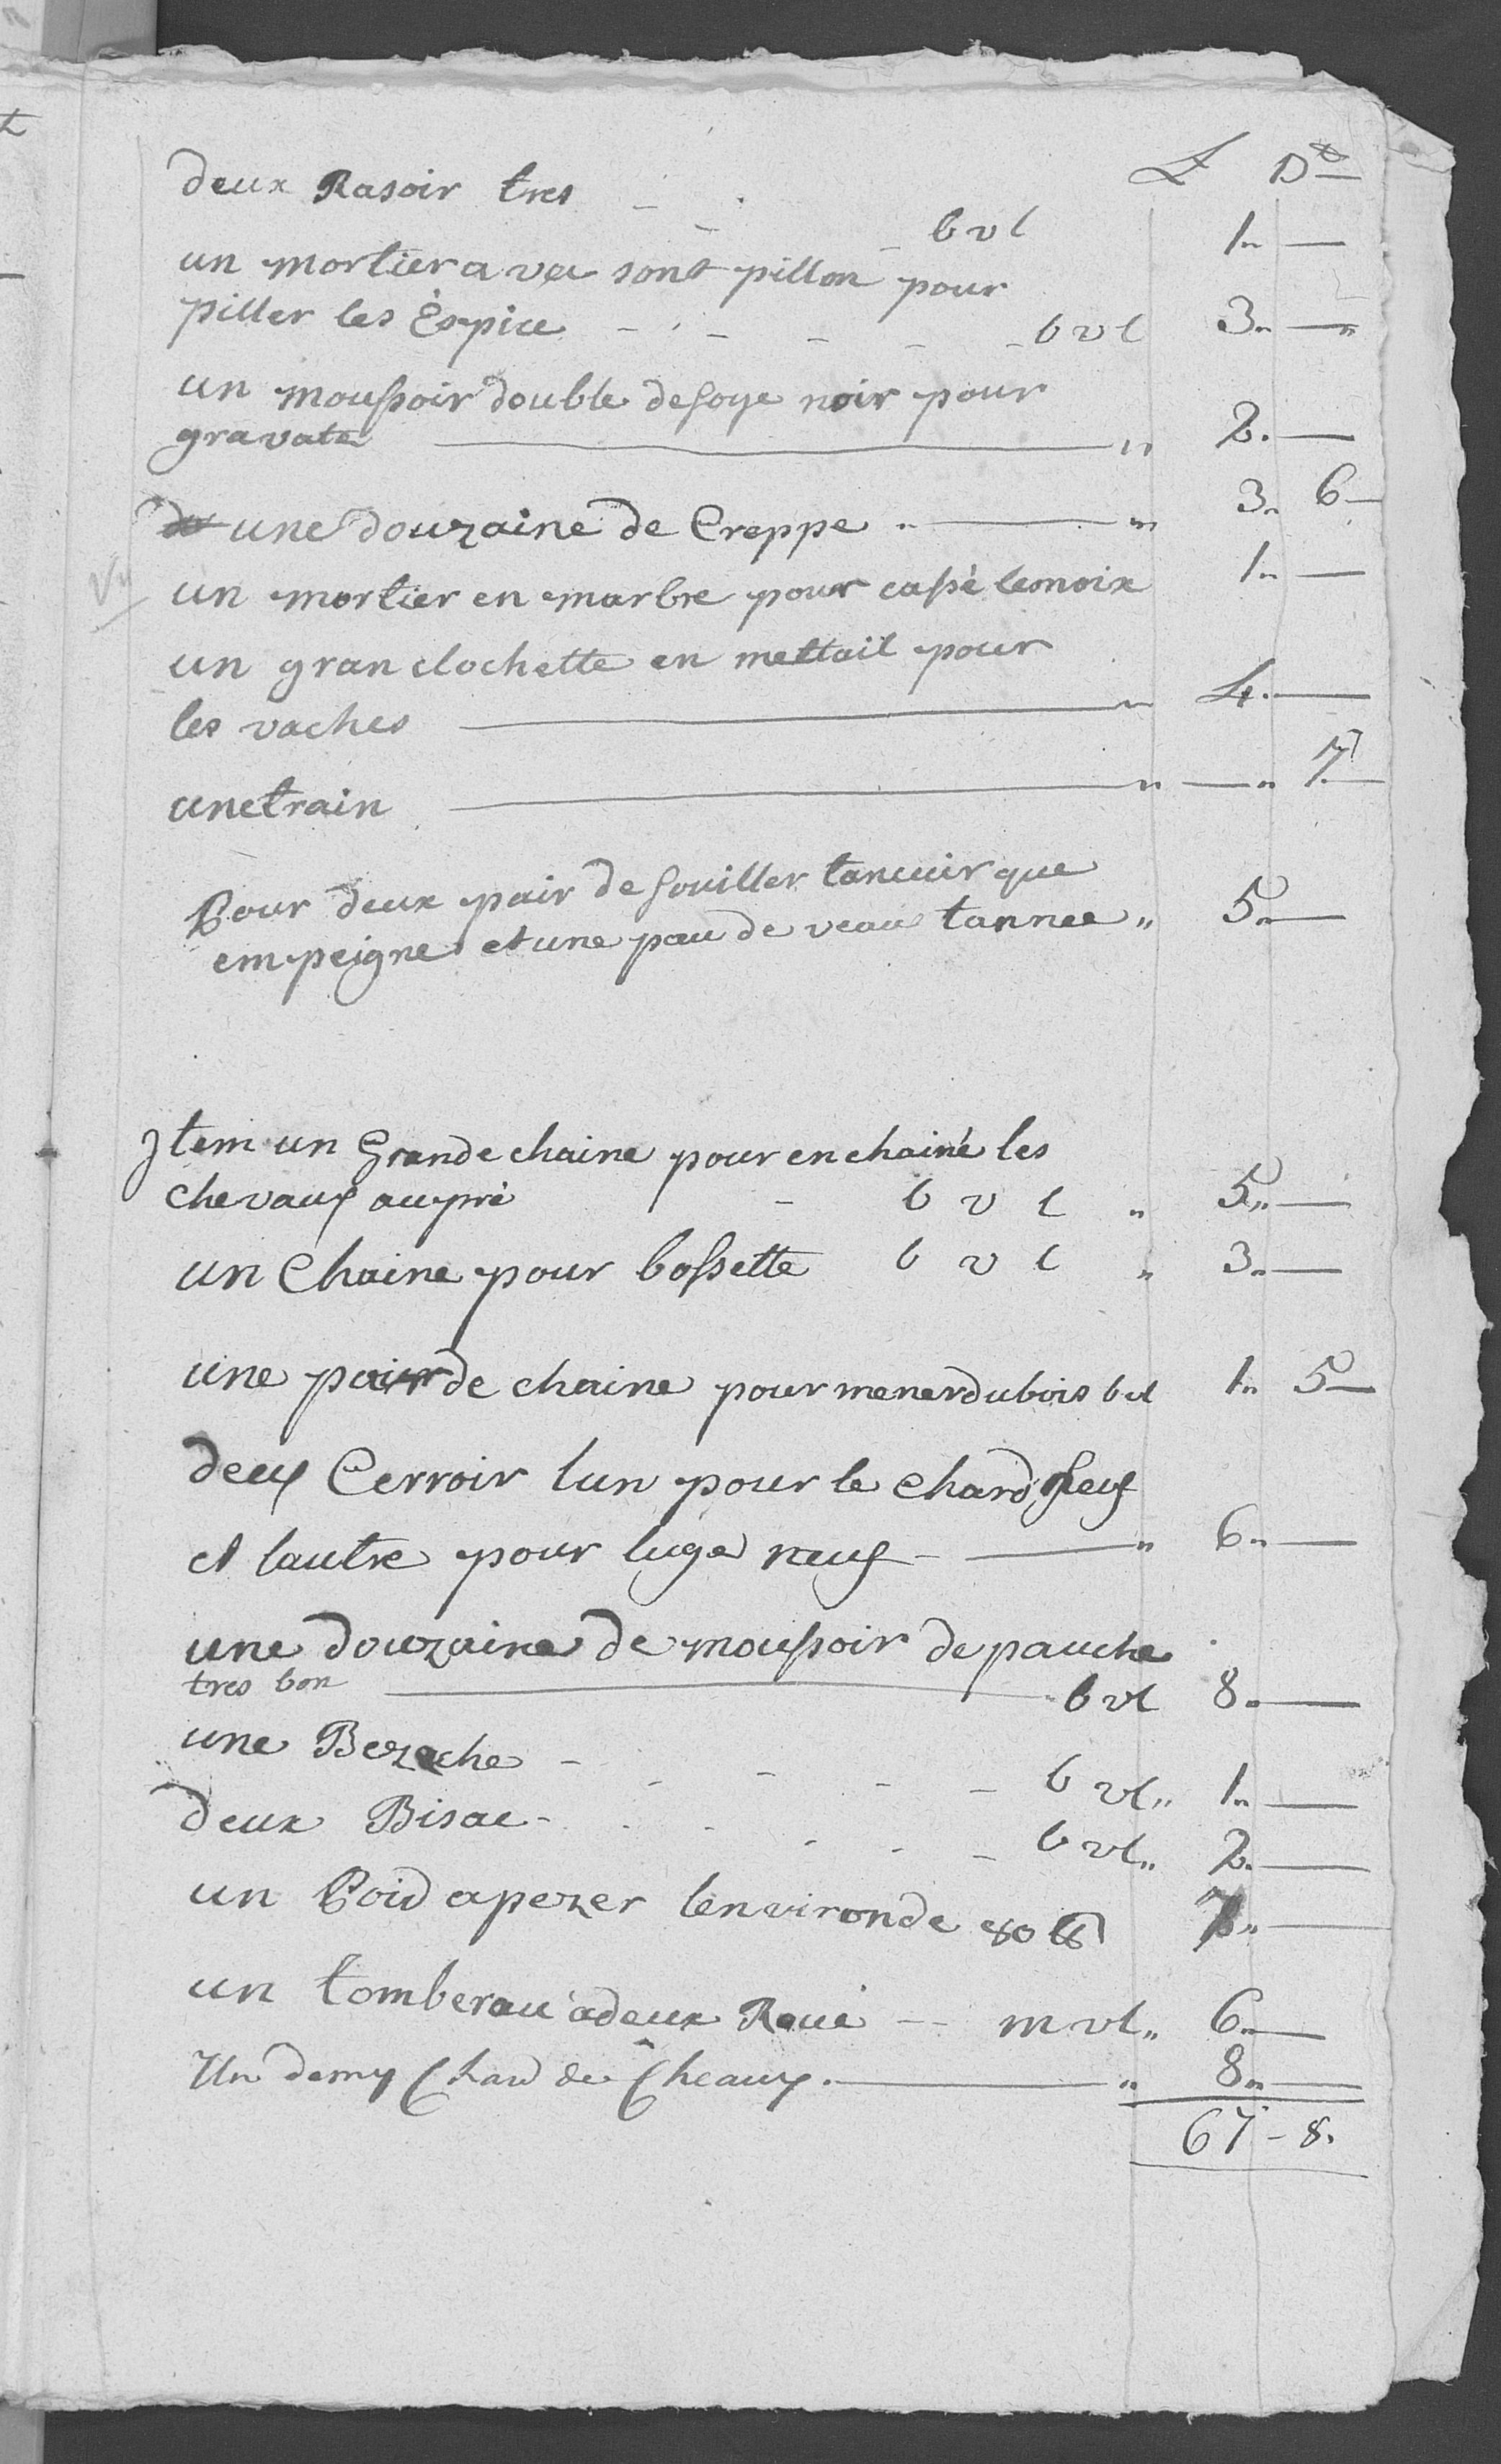 £ Dt
deux Rasoir tres - - - - bvl 1" —
un mortier avec sont pillon pour
piller les Èspice - - - - - bvl 3" —"
un mousſoir double de soye noir pour
gravate — " 2. —
une douzaine de Creppe " — " 3. 6 —
Vu
un mortier en marbre pour caſsè lenoix 1" —
un gran clochette en mettail pour
les vaches — " 4. —
une train — " — " 7 —
Pour deux pair de souiller tancuir que
empeigne et une pau de veau tannee " 5" —
Item un Grande chaine pour enchainé les
chevaux au prè - b v l " 5" —
un Chaine pour boſsette b v l " 3" —
une pair de chaine pour mener du bois bvl 1" 5 —
deux Cerroir lun pour le chard neuf
et lautre pour luge neuf — " 6" —
une douzaine de mousſoir de pauche
tres bon — bvl 8" —
une Bezache - - - - - b vl " 1" —
deux Bisac - - - - - b vl " 2" —
un Poid a pezer lenviron de 80 ℔ 7" —
un tomberau a deux Roué — m vl " 6" —
Un demy Chard de Cheaux. — " 8" —
67 - 8.